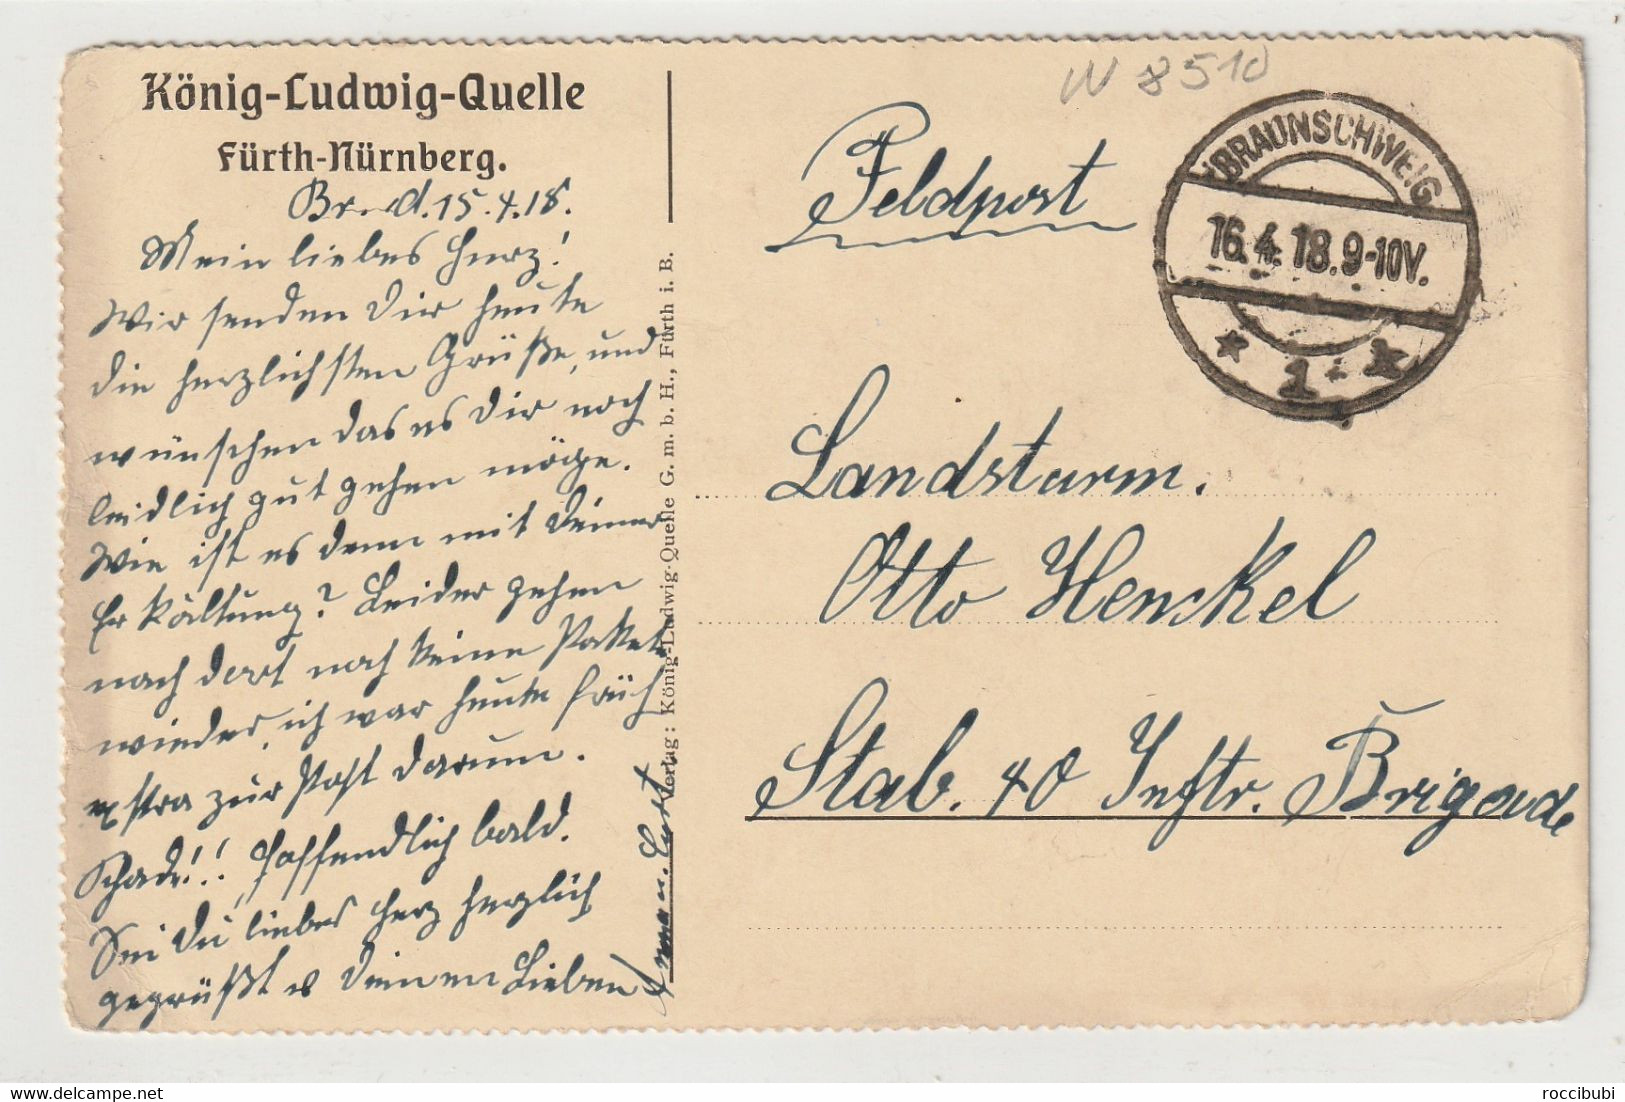 König-Ludwig-Quelle
Fürth-Nürnberg.
15.4.18.
Mein liebes Herz!
Wir senden Dir heute
die herzlichsten Grüße, und
wünschen das es Dir noch
leidlich gut gehen möge.
Wie ist es denn mit Deiner
Erkältung? Leider gehen
nach dort noch keine Pakete
wieder, ich war heute früh
extra zur Post darum.
Schade!! Hoffendlich bald.
Sei Du liebes Herz herzlich
gegrüßt v Deinen Lieben
Verlag: König-Ludwig-Quelle G. m. b. H., Fürth i. B.
W 8510
Feldpost
BRAUNSCHWEIG
16.4.18.9-10V.
* 1 *
Landsturm.
Otto Henckel
Stab. 40 Inftr. Brigade
roccibubi